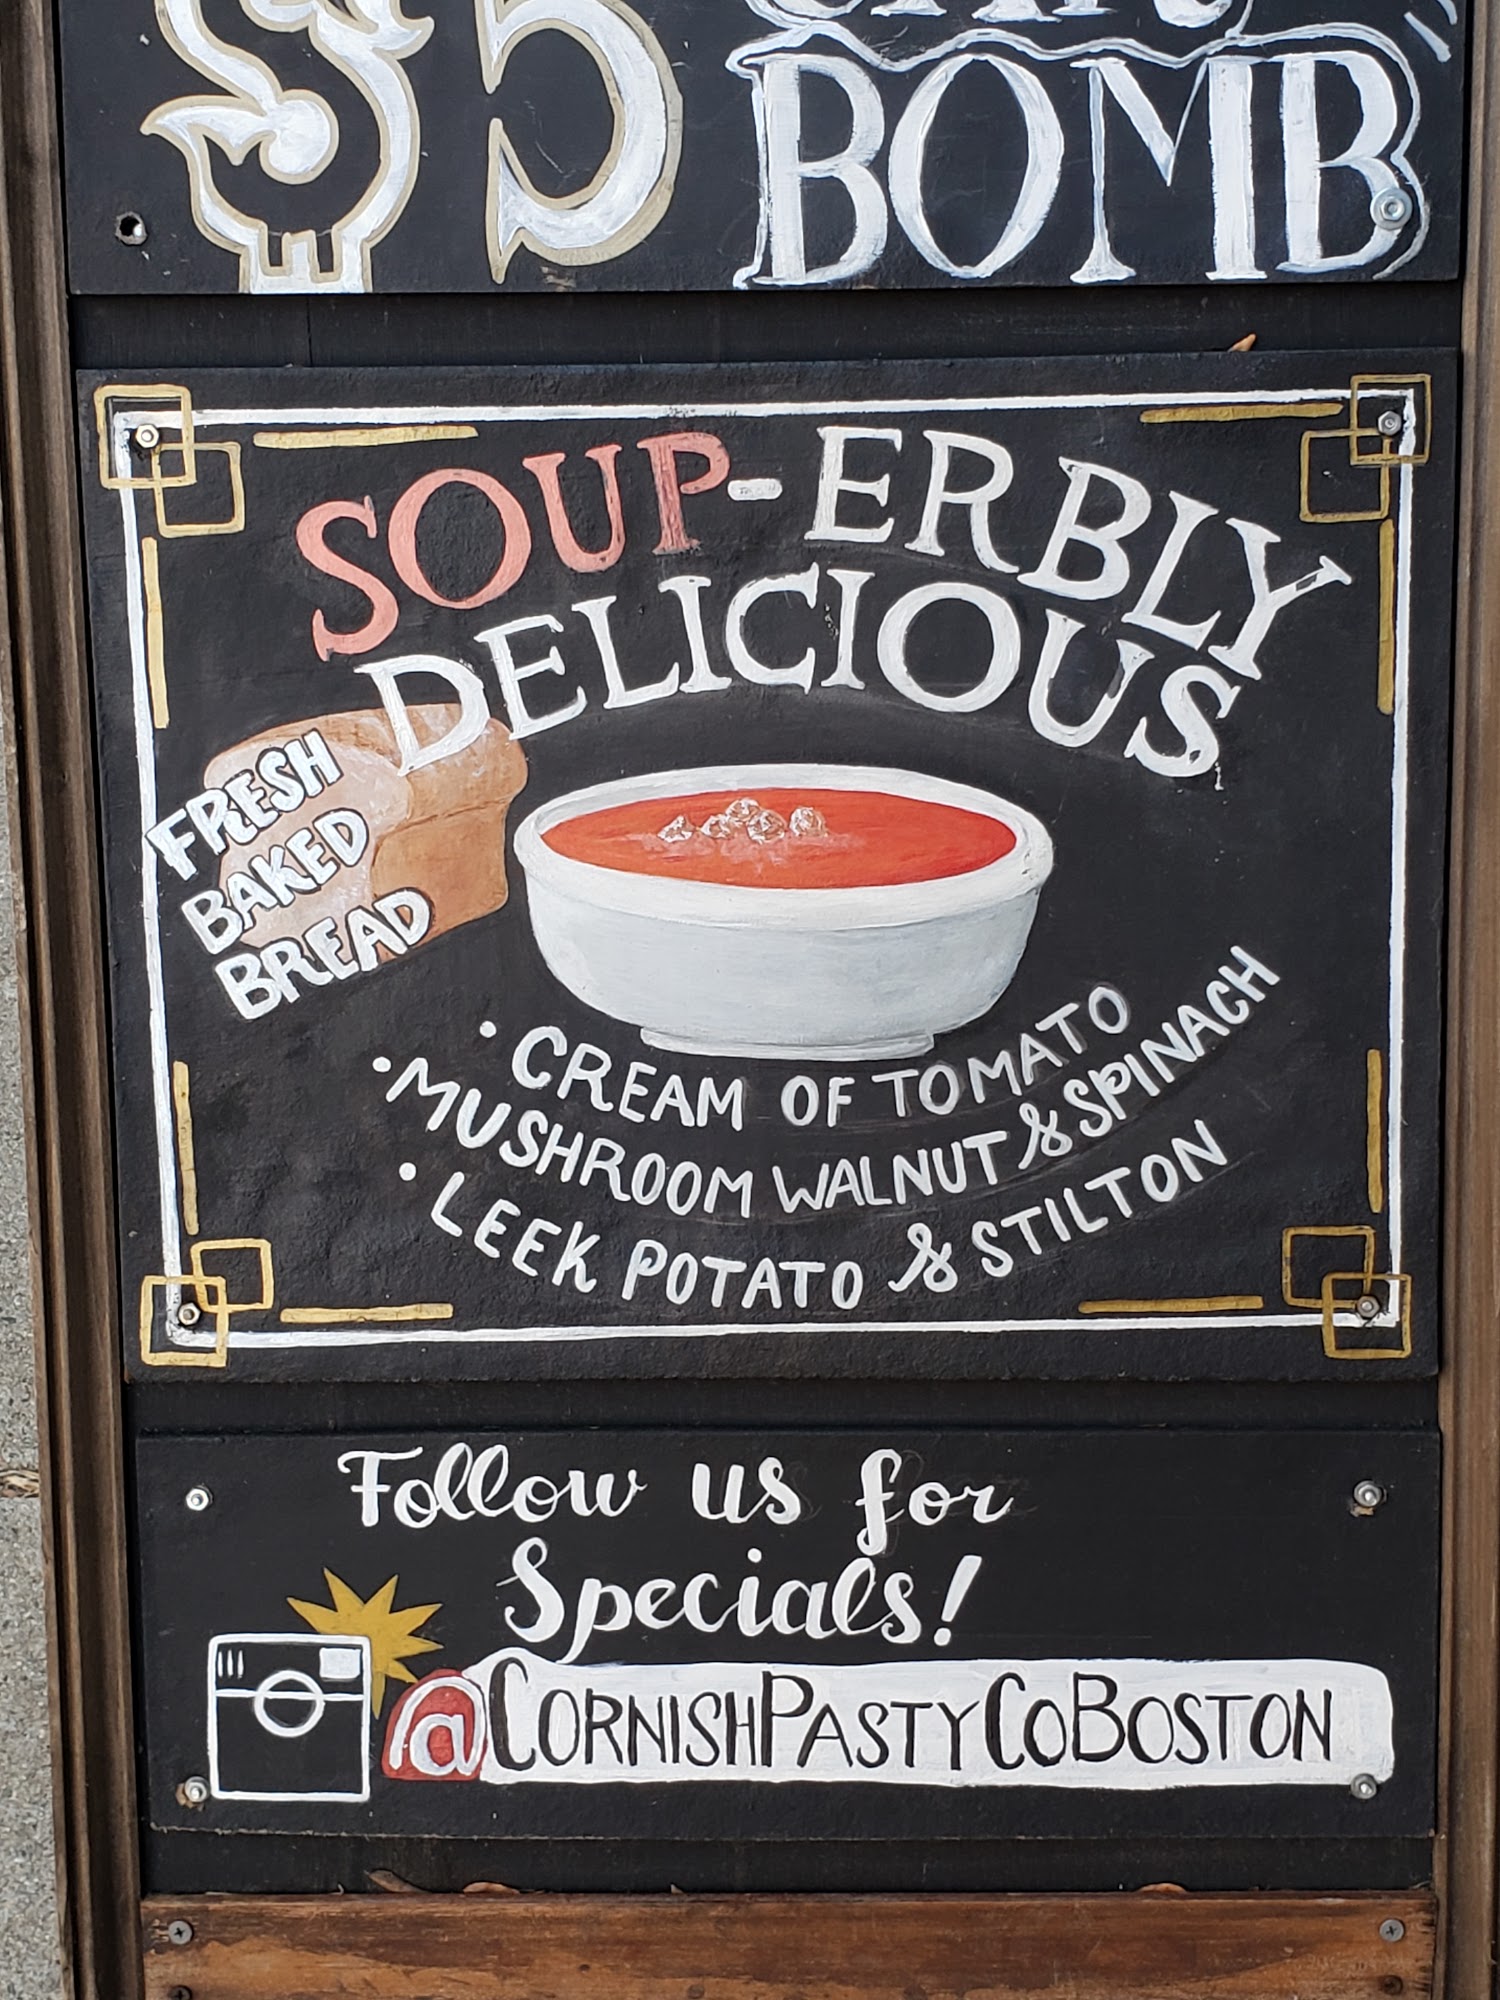 $5
BOMB
SOUP-ERBLY
DELICIOUS
FRESH
BAKED
BREAD
· CREAM OF TOMATO
· MUSHROOM WALNUT & SPINACH
· LEEK POTATO & STILTON
Follow us for
Specials!
@CORNISHPASTYCOBOSTON